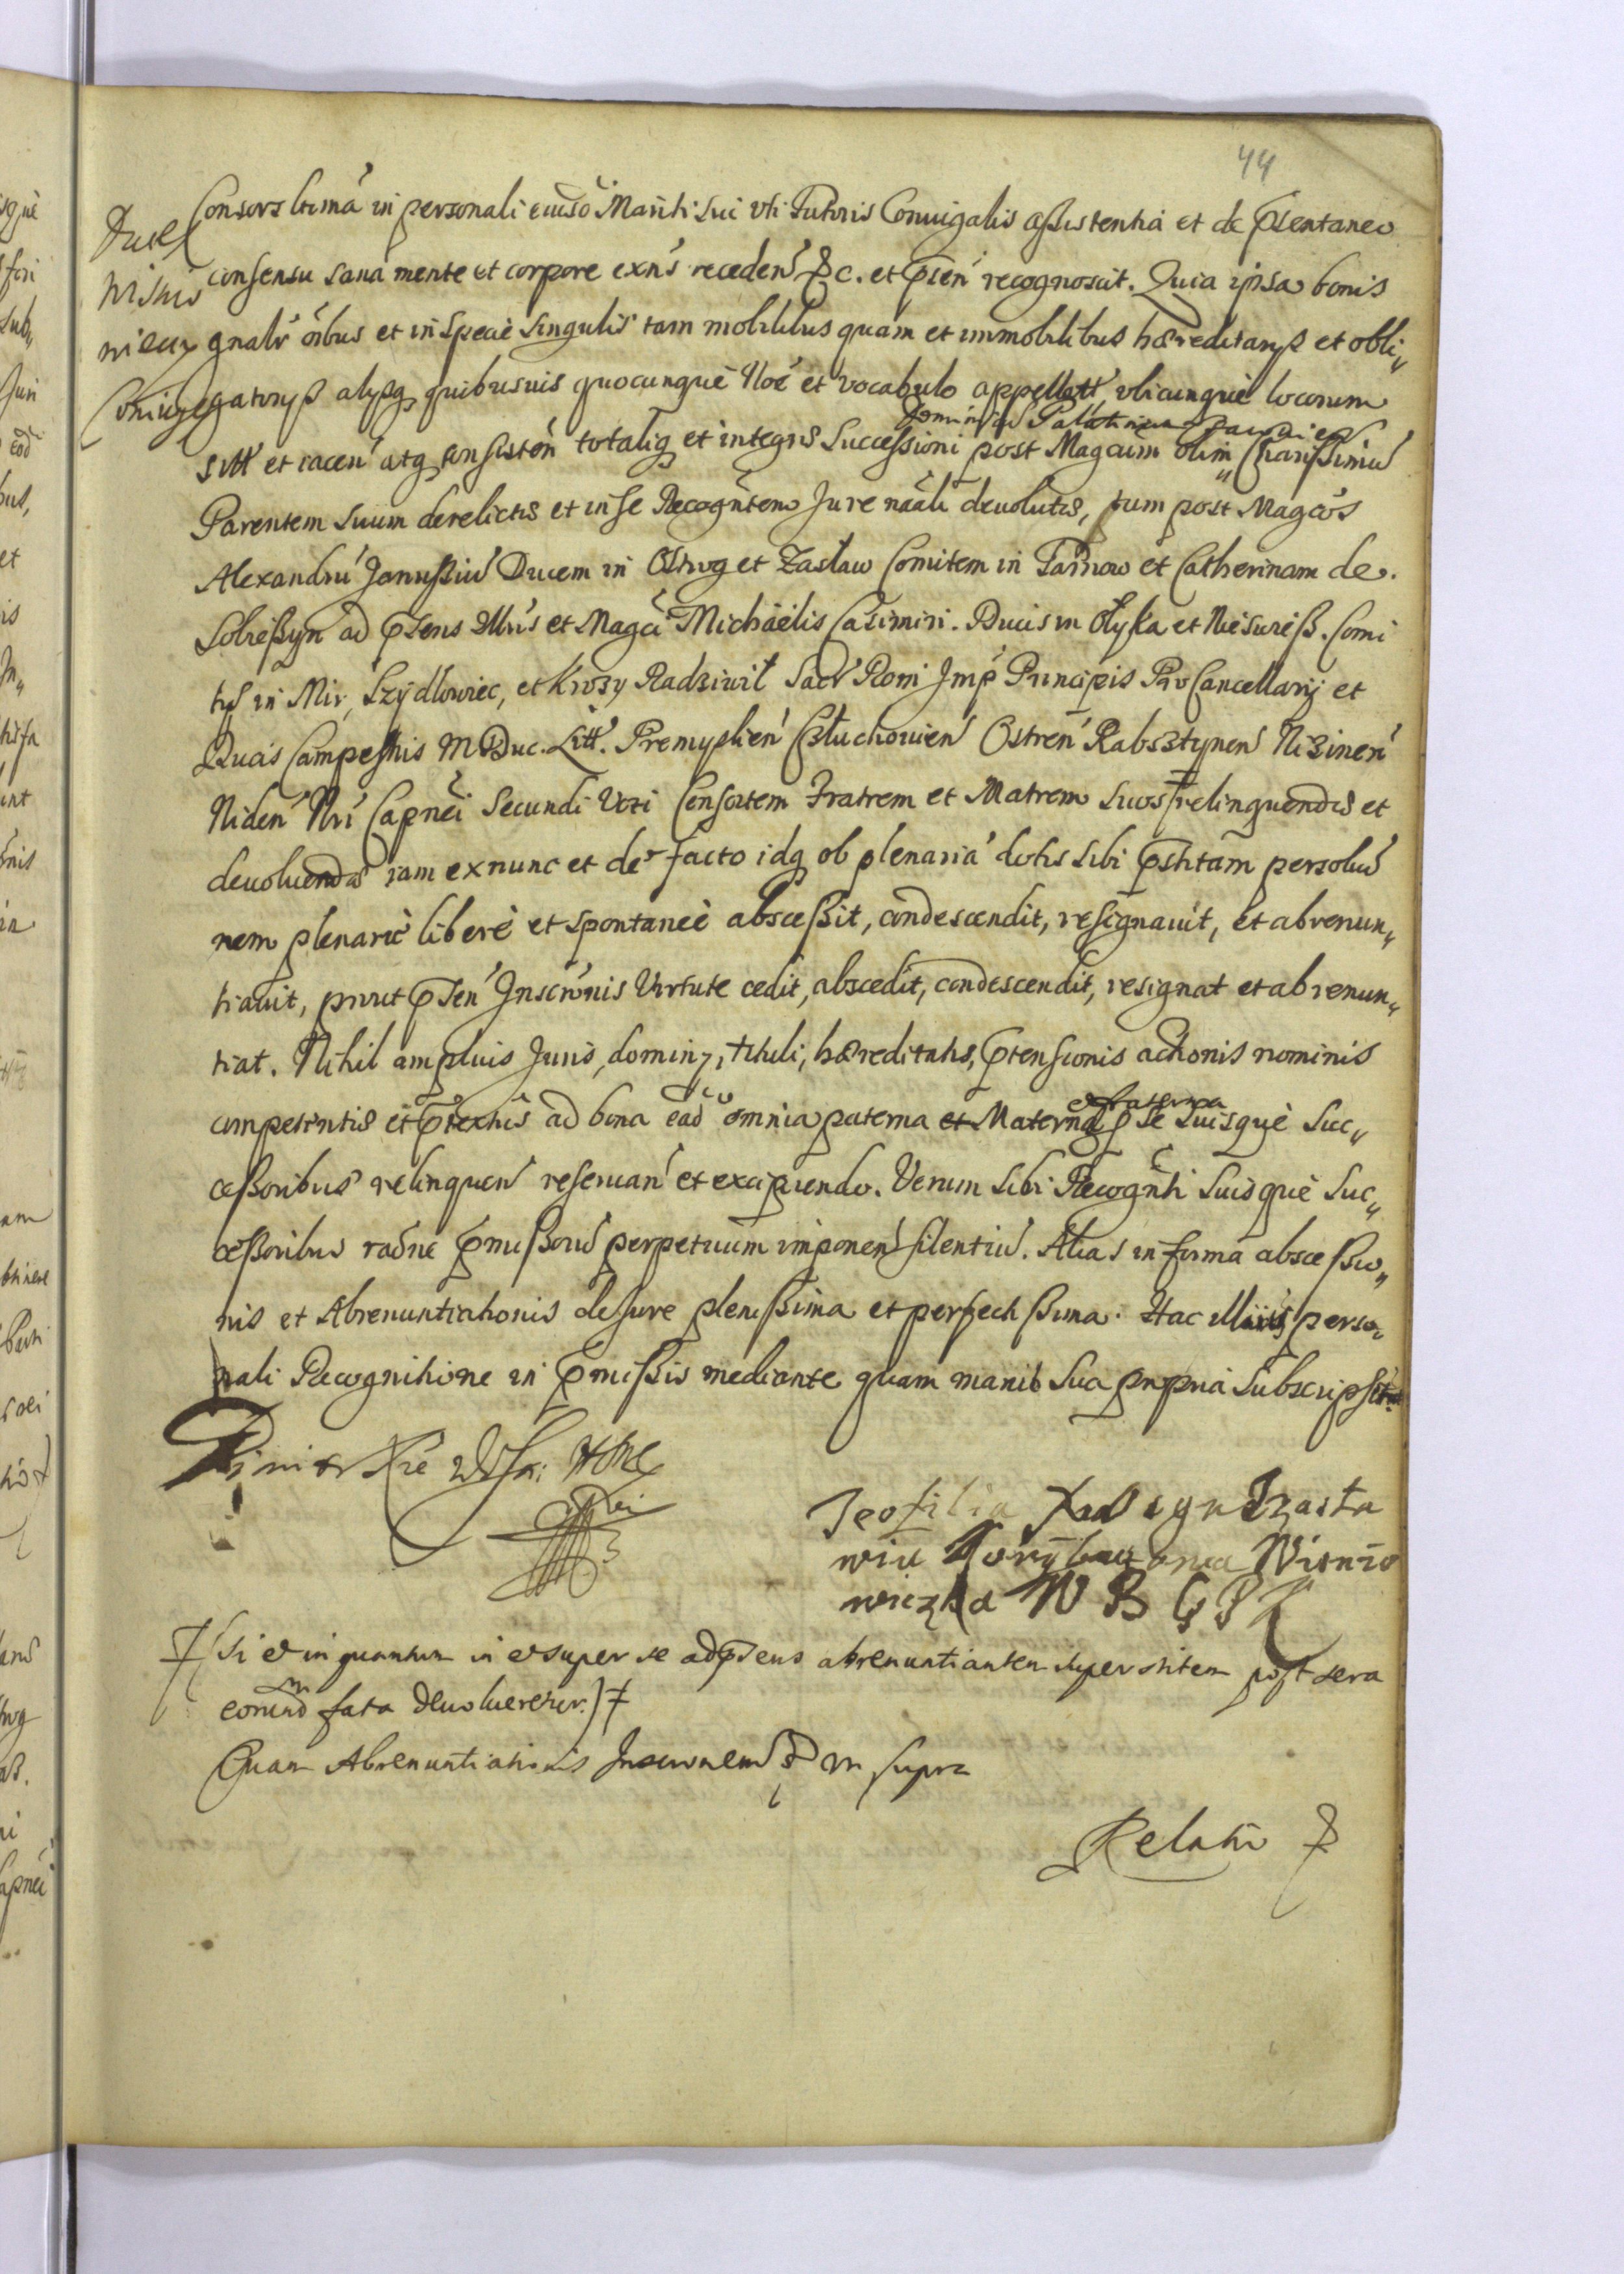 44
Consors ltima in personali eiusd Mariti sui uti Tutoris Coniugalis assistentia et de pṡentaneo
Duci
Wisnio
wiecz
Coniuge
consensu sana mente et corpore exñs receden &c. et psen recognoscit. Quia ipsa bonis
gnalr oibus et in specie singulis tam mobilibus quam et immobilibus hæreditarys et obli„
gatorys alysq quibusuis quocunque Noe et vocabulo appellatt, ubicunque locorum
Dominicu Palatinum
sitt et iacen atq consisten totaliq et integris Successioni post Magcum olim „ Charissimu
Parentem suum derelictis et in se Recogntem Jure naali deuolutis, tum post Magcos
Alexandru Janussiu Ducem in Ostrog et Zaslaw Comitem in Tarnow et Catherinam de
Sobieszyn ad psens Illris et Magci Michaelis Casimiri Ducis in Olyka et Niesuiesz. Comi
tis in Mir, Szydlowiec, et Krozy Radziwil Sacr Rom Imp Principis Pro Cancellarij et
Ducis Campestris M Duc. Litt. Premyslien Czluchouien Ostren Rabsztynen Nizinen
Niden Nri Capnei Secundi Voti Consortem Fratrem et Matrem suos ǂ relinquendis et
deuoluendis iam ex nunc et de facto idq ob plenaria dotis sibi pstitam persolu
nem plenarie libere et spontanee abscessit, condescendit, resignauit, et abrenun„
tiauit, prout psen Inscronis Virtute cedit, abscedit, condescendit, resignat et abrenun„
tiat. Nihil amplius Juris, dominy, tituli, hæreditatis, ptensionis actionis nominis
et fraterna
competentis et ptextus ad bona ead omnia paterna et Materna p se suisque Suc„
cessoribus relinquen reseruan et excipiendo. Verum sibi Recognti suisque Suc„
cessoribus raone pmissoru perpetuum imponen silentiu. Alias in forma abscessio„
nis et Abrenuntiationis de Jure plenissima et perfectissima. Hac illius perso„
nali Recognitione in pmissis mediante quam manib sua propria subscripsit
Teofilia Xse gna Zasla
wiu Korybutowa Wisnio
wiczka W B G B K
ǂ (si et in quantum in et super se ad psens abrenuntiantem superstitem post sera
eorund fata deuoluerentur.) ǂ
Quam Abrenuntiationis Inscronem & ut supra
Relatio &